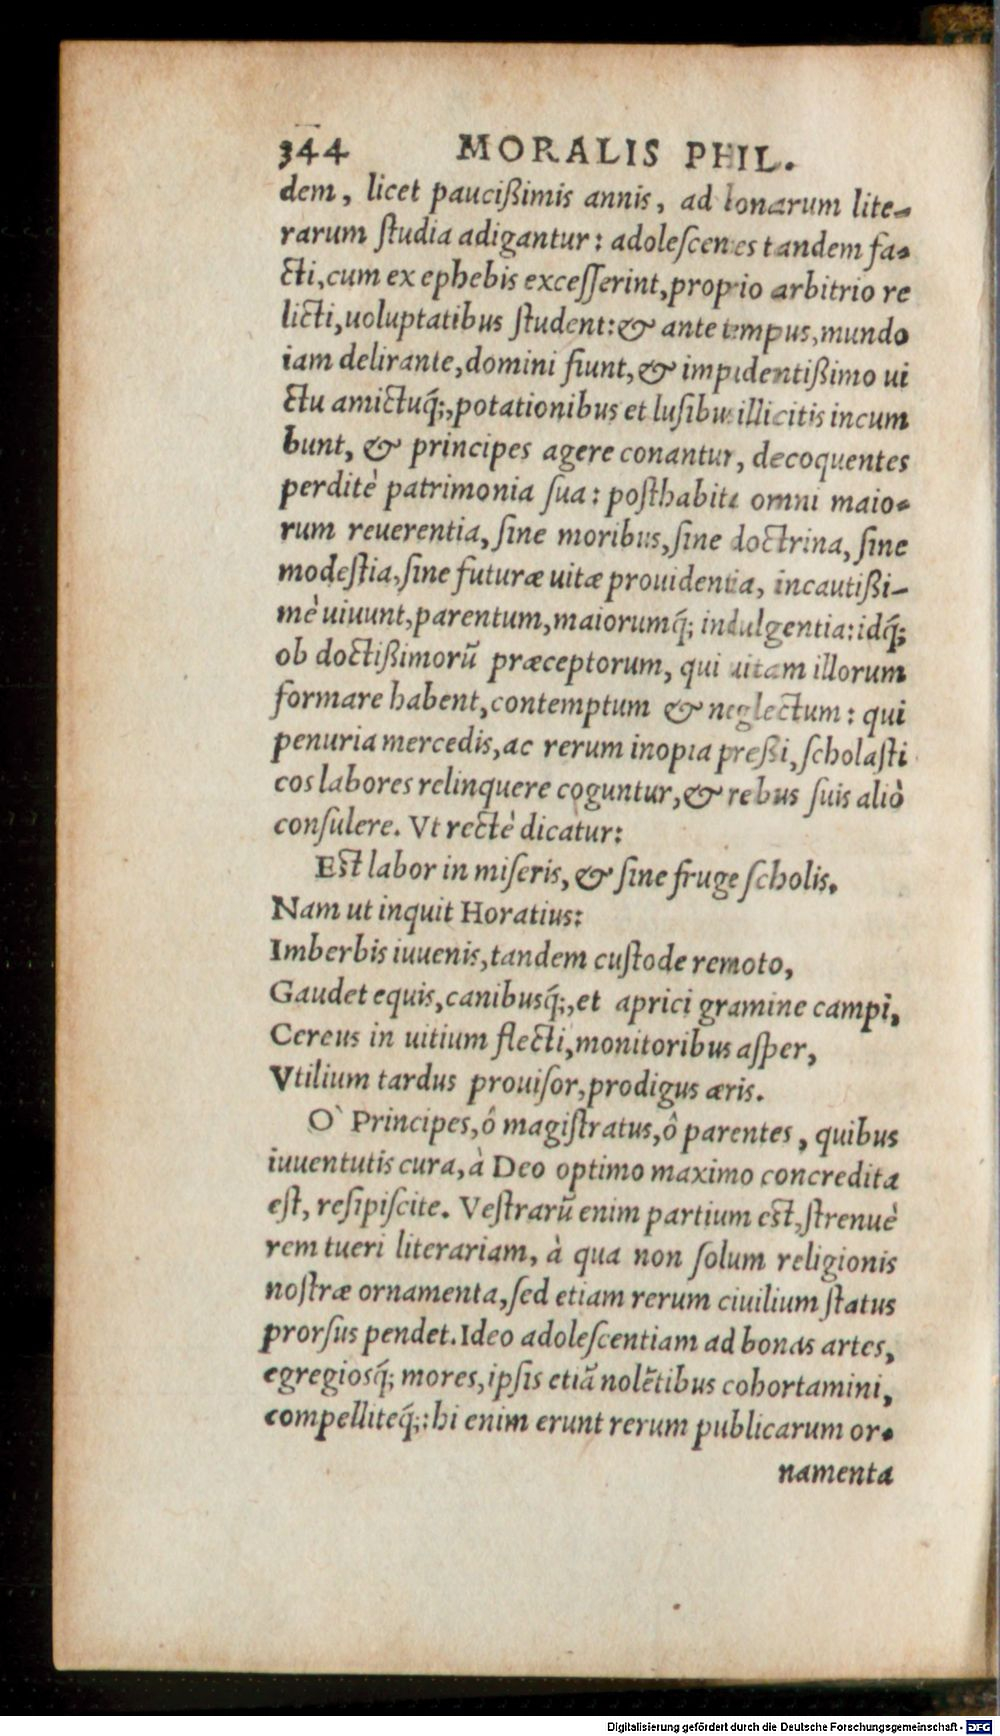 344 MORALIS PHIL.
dem, licet paucißimis annis, ad bonarum lite-
rarum ſtudia adigantur: adoleſcentes tandem fa-
cti, cum ex ephebis exceſſerint, proprio arbitrio re
licti, uoluptatibus ſtudent: & ante tempus, mundo
iam delirante, domini fiunt, & impudentißimo ui
ctu amictuq́;, potationibus et luſibus illicitis incum
bunt, & principes agere conantur, decoquentes
perditè patrimonia ſua: poſthabita omni maio-
rum reuerentia, ſine moribus, ſine doctrina, ſine
modeſtia, ſine futuræ uitæ prouidentia, incautißi-
mè uiuunt, parentum, maiorumq́; indulgentia: idq́;
ob doctißimorũ præceptorum, qui uitam illorum
formare habent, contemptum & neglectum: qui
penuria mercedis, ac rerum inopia preßi, ſcholaſti
cos labores relinquere coguntur, & rebus ſuis aliò
conſulere. Vt rectè dicatur:
Eſt labor in miſeris, & ſine fruge ſcholis.
Nam ut inquit Horatius:
Imberbis iuuenis, tandem cuſtode remoto,
Gaudet equis, canibusq́;, et aprici gramine campi,
Cereus in uitium flecti, monitoribus aſper,
Vtilium tardus prouiſor, prodigus æris.
O` Principes, ô magiſtratus, ô parentes, quibus
iuuentutis cura, à Deo optimo maximo concredita
eſt, reſipiſcite. Veſtrarũ enim partium eſt, ſtrenuè
rem tueri literariam, à qua non ſolum religionis
noſtræ ornamenta, ſed etiam rerum ciuilium ſtatus
prorſus pendet. Ideo adoleſcentiam ad bonas artes,
egregiosq́; mores, ipſis etiã nolẽtibus cohortamini,
compelliteq́;: hi enim erunt rerum publicarum or-
namenta
Digitalisierung gefördert durch die Deutsche Forschungsgemeinschaft - DFG